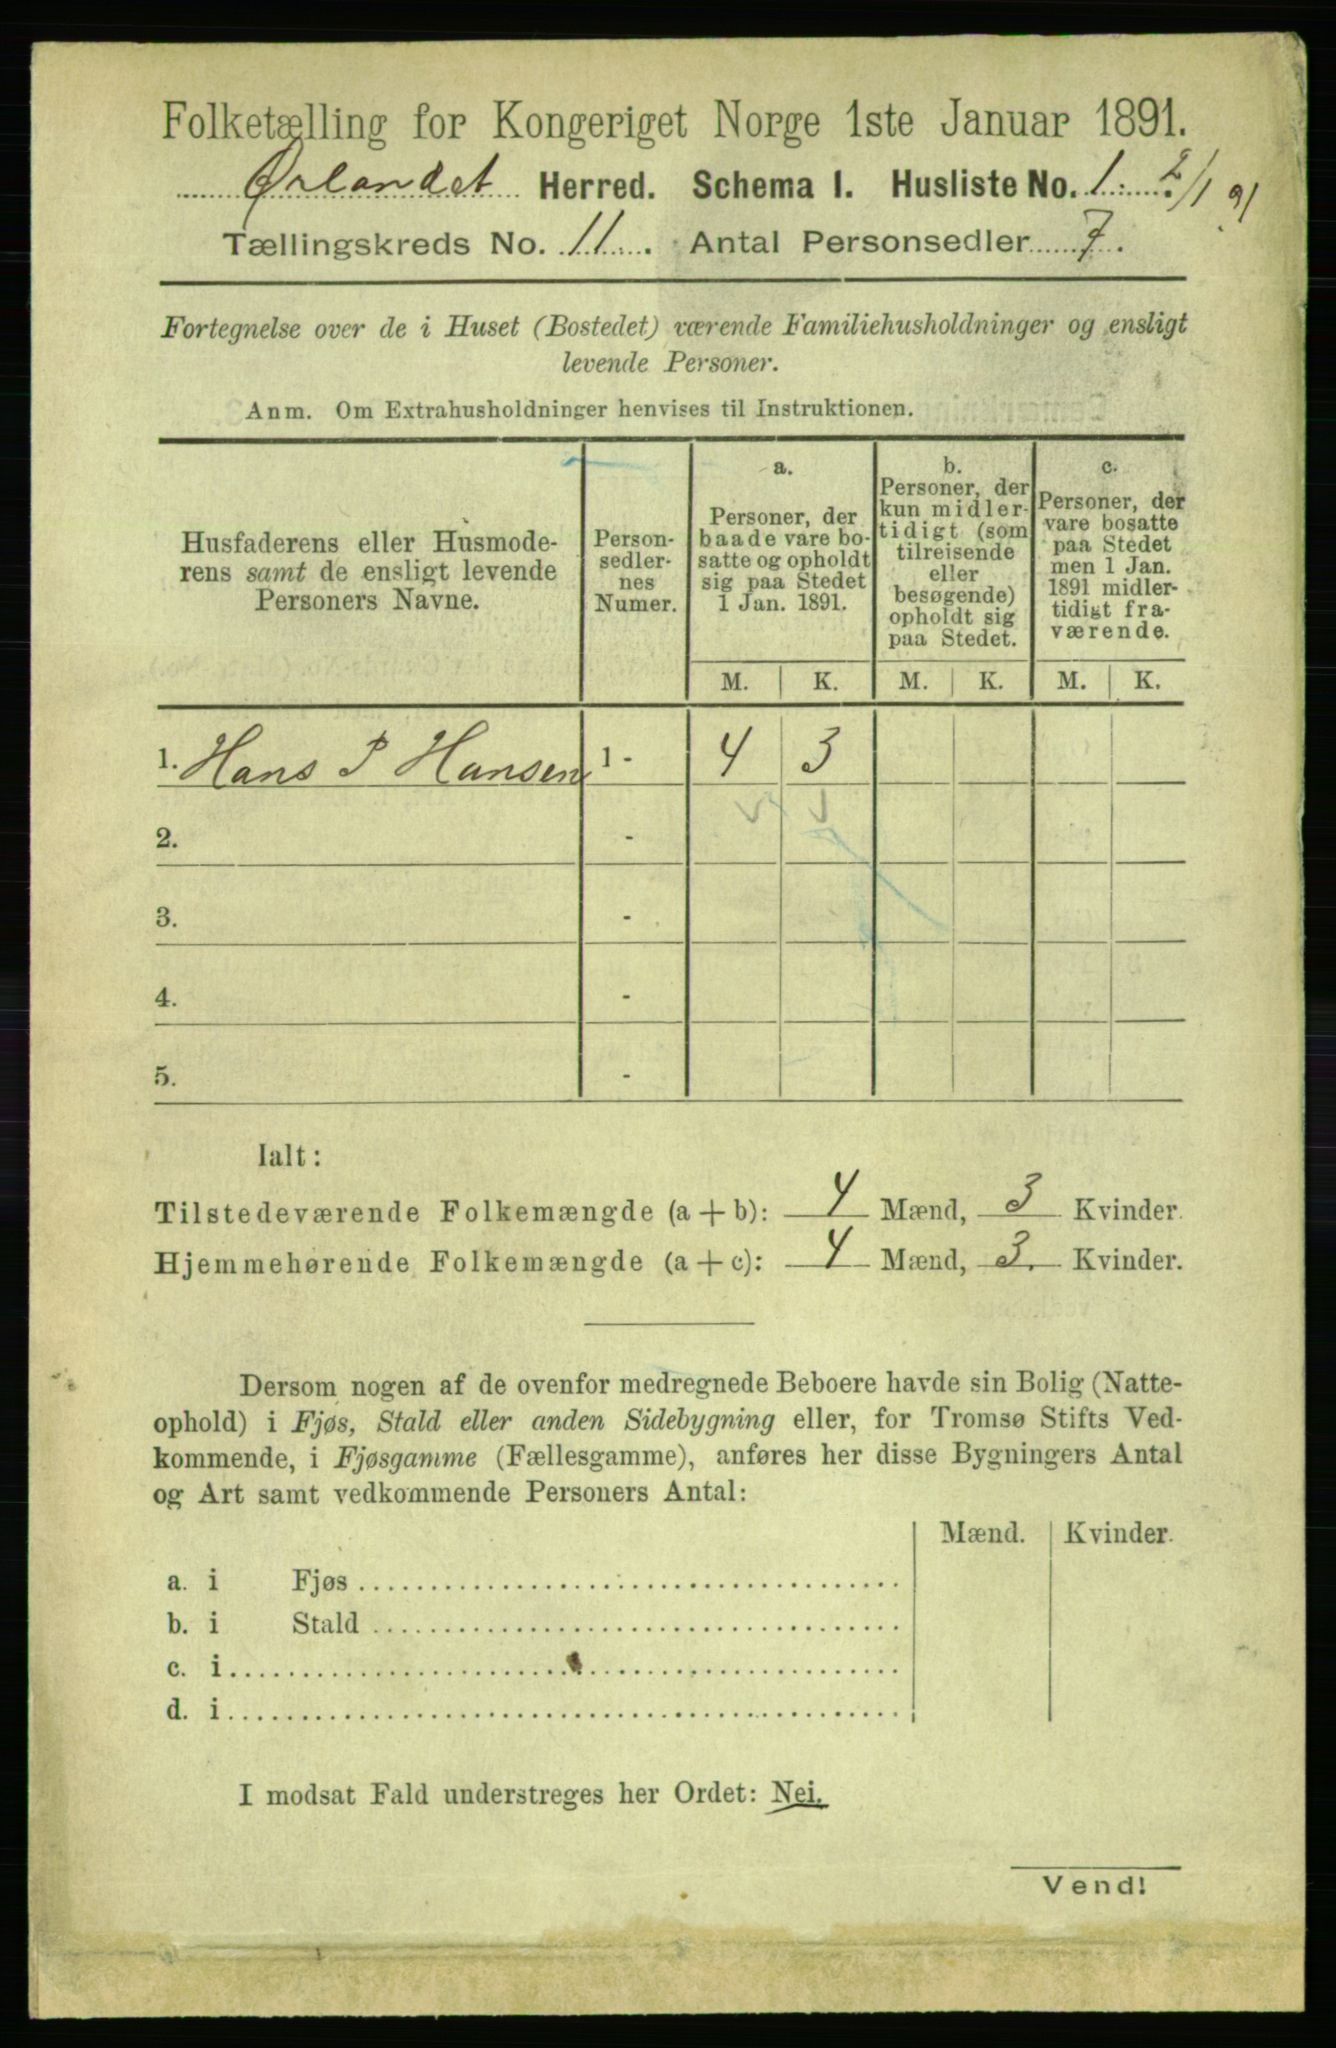 Folketælling for Kongeriget Norge 1ste Januar 1891.
Ørlandet Herred. Schema I. Husliste No. 1. 2/1 91
Tællingskreds No. 11. Antal Personsedler 7.
Fortegnelse over de i Huset (Bostedet) værende Familiehusholdninger og ensligt
levende Personer.
Anm. Om Extrahusholdninger henvises til Instruktionen.
Husfaderens eller Husmode-
rens samt de ensligt levende
Personers Navne.
Person-
sedler-
nes
Numer.
a.
Personer, der
baade vare bo-
satte og opholdt
sig paa Stedet
1 Jan. 1891.
b.
Personer, der
kun midler-
tidigt (som
tilreisende
eller
besøgende)
opholdt sig
paa Stedet.
c.
Personer, der
vare bosatte
paa Stedet
men 1 Jan.
1891 midler-
tidigt fra-
værende.
M. K. M. K. M. K.
1. Hans P Hansen 1 - 4 3
2. -
3. -
4. -
5. -
Ialt:
Tilstedeværende Folkemængde (a + b): 4 Mænd, 3 Kvinder.
Hjemmehørende Folkemængde (a + c): 4 Mænd, 3. Kvinder.
Dersom nogen af de ovenfor medregnede Beboere havde sin Bolig (Natte-
ophold) i Fjøs, Stald eller anden Sidebygning eller, for Tromsø Stifts Ved-
kommende, i Fjøsgamme (Fællesgamme), anføres her disse Bygningers Antal
og Art samt vedkommende Personers Antal:
Mænd. Kvinder.
a. i Fjøs
b. i Stald
c. i
d. i
I modsat Fald understreges her Ordet: Nei.
Vend!